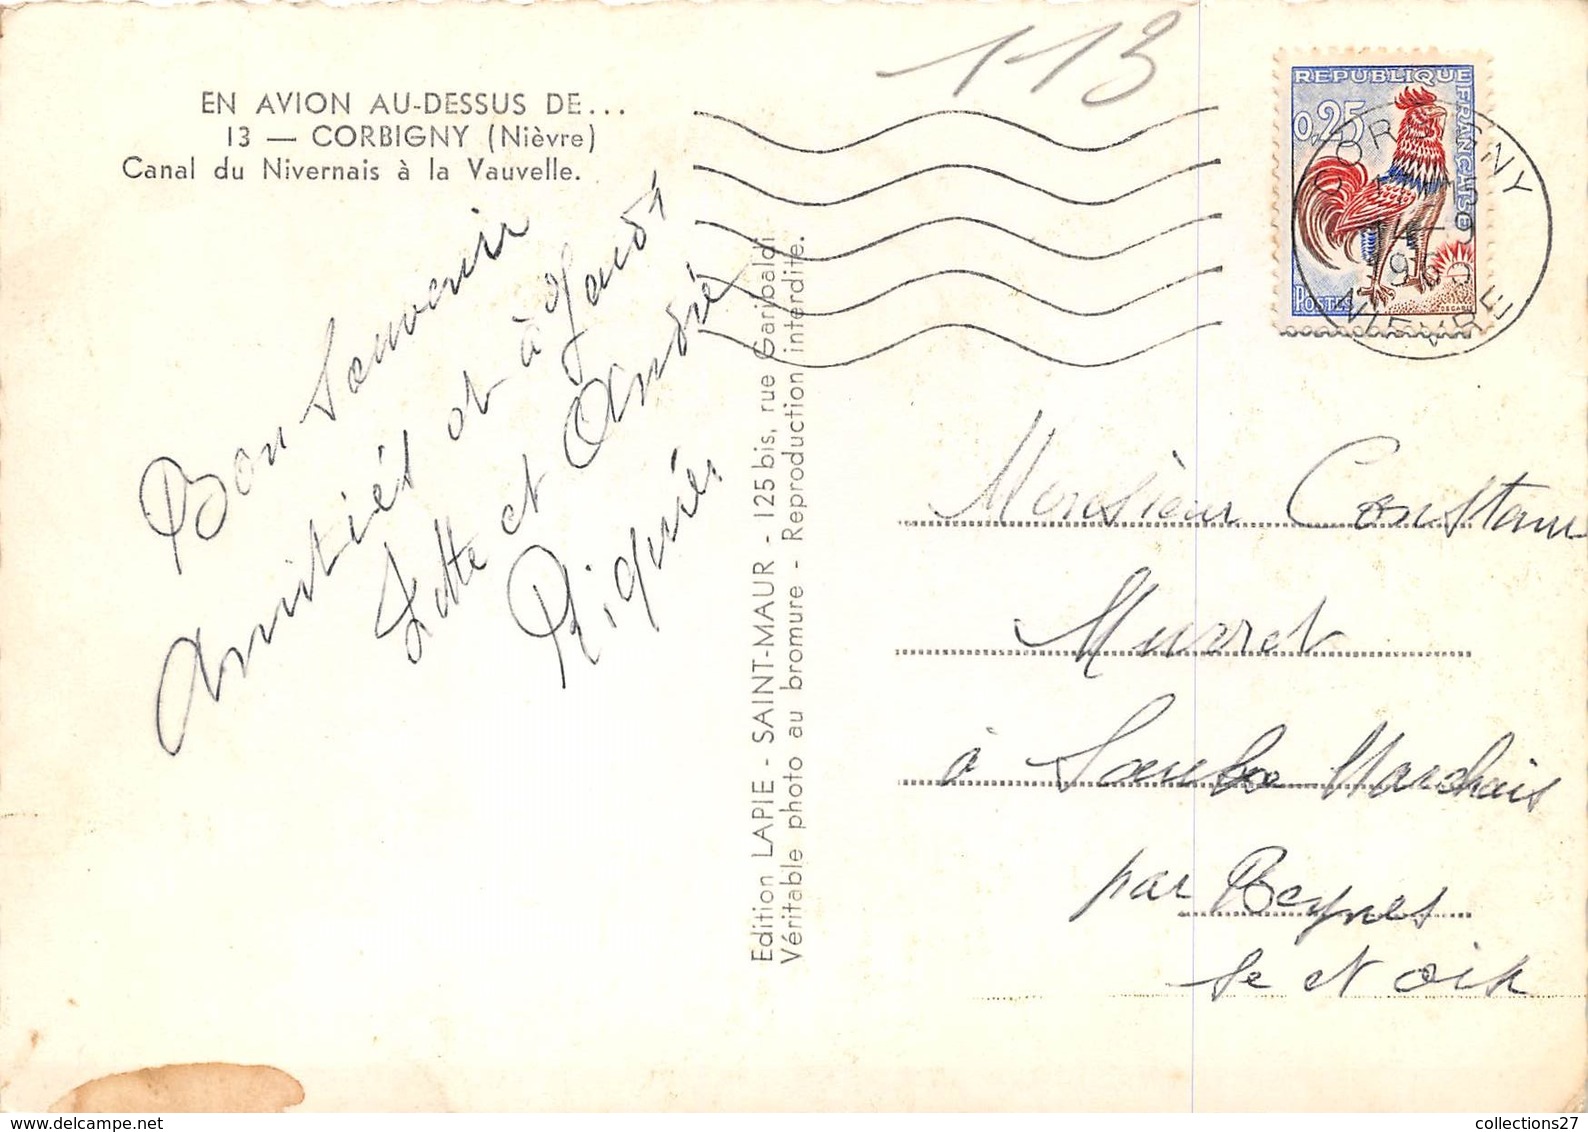 113
EN AVION AU-DESSUS DE...
13 — CORBIGNY (Nièvre)
Canal du Nivernais à la Vauvelle.
REPUBLIQUE
FRANÇAISE
0,25
POSTES
CORBIGNY
14-9
NIEVRE
Bon Souvenir
Amitiés et à
Lotte et André
Riquier
Edition LAPIE - SAINT-MAUR - 125 bis, rue Garibaldi
Véritable photo au bromure - Reproduction interdite.
Monsieur Constant
Murret
à Marchais
par Beynes
Se et Oise
collections27